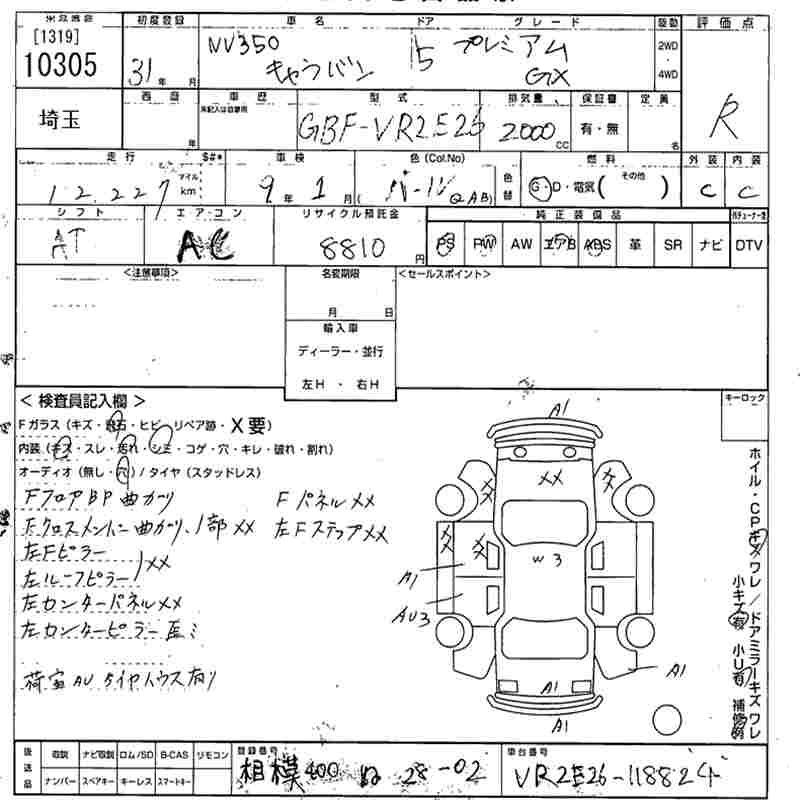 [1319] 初度登録 車名 ドア グレード 駆動 評価点
10305 31年 月 NV350 キャラバン 5 プレミアム GX 2WD・4WD R
埼玉 西暦 年 車歴 型式 GBF-VR2E26 排気量 2000cc 保証書 有・無 定員 名
走行 12.227 マイル km $#* 車検 9年1月 色(Col.No) パール (QAB) 色替 燃料 G・D・電気 (その他) 外装 C 内装 C
シフト AT エアコン AC リサイクル預託金 8810円 純正装備品
PS PW AW エアB ABS 革 SR ナビ DTV
<注意事項> 名変期限 <セールスポイント>
月 日
輸入車
ディーラー・並行
左H ・ 右H
<検査員記入欄> キーロック
Fガラス(キズ・飛石・ヒビ・リペア跡・X要)
内装(キズ・スレ・汚れ・シミ・コゲ・穴・キレ・破れ・割れ)
オーディオ(無し・穴)/タイヤ(スタッドレス)
FフロアBP曲ガリ FパネルXX
Fクロスメンバー曲ガリ、1部XX 左FステップXX
左Fピラー
左ルーフピラー XX
左センターパネルXX
左センターピラー
荷室AU タイヤハウス有り
A1
XX
XX
XX
XX
XX
W3
A1
AU3
A1
A1
A1
ホイル・CPキズワレ/ドアミラーキズワレ
小キズ有 小U有 補修
後送品 取説 ナビ取説 ロム/SD B-CAS リモコン 登録番号 車台番号
ナンバー スペアキー キーレス スマートキー 相模400 28-02 VR2E26-118824